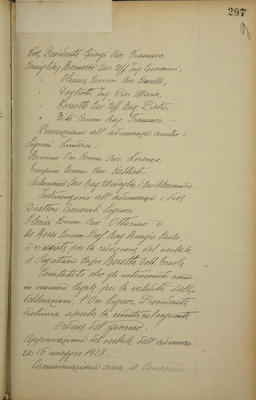 297
Vice Presidente Giorgi Avv. Francesco,
Consiglieri Bernocco Cav. Uff. Ing. Giovanni,
" Comm. Avv. Camillo,
" Ing. Pier Maria,
" Peretti Cav. Uff. Rag. Pietro,
" Comm. Rag. Francesco. —
Presenziano all'adunanza anche i
Signori Sindaci:
Comm. Avv. Lorenzo,
Comm. Avv.
Cav. Rag. Avv. Alessandro.
Intervengono all'adunanza i Vice
Direttori Generali Signori
Comm. Avv. Ottorino e
De Rossi Comm. Prof. Rag. Biagio Carlo,
e assiste, per la redazione del verbale
il Segretario Capo Beretta Dott. Ercole.
Constatato che gli intervenuti sono
in numero legale per la validità delle
deliberazioni, l'On. Signor Presidente
dichiara aperta la seduta col seguente
Ordine del giorno:
Approvazione del verbale dell'adunan-
za 16 maggio 1928.
Comunicazioni circa il Concorso